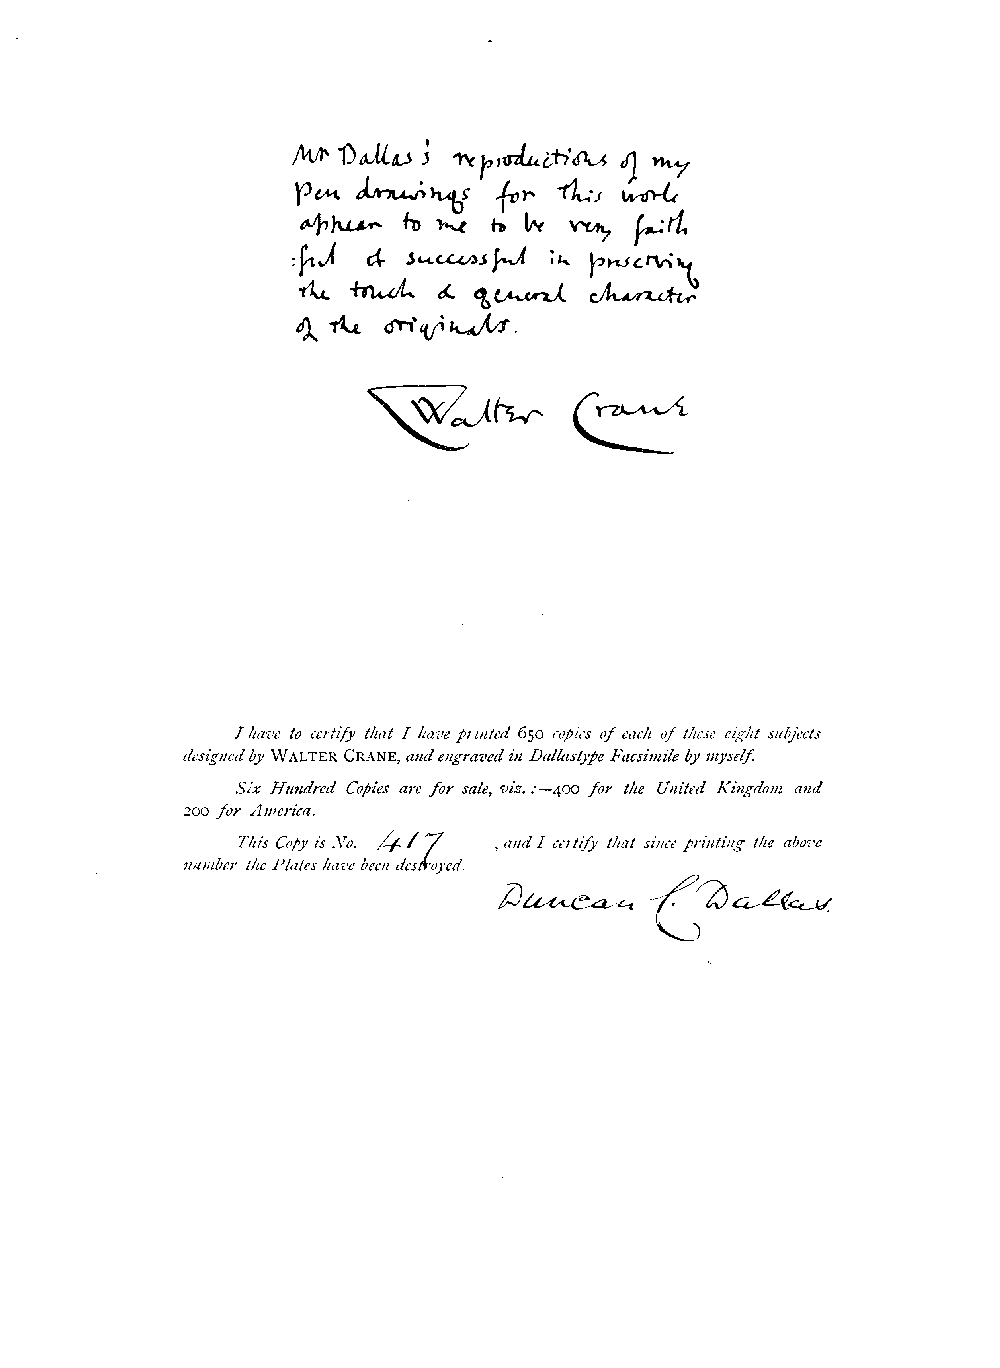 Mr Dallas's reproductions of my
pen drawings for this work
appear to me to be very faith
:ful & successful in preserving
the touch & general character
of the originals.
Walter Crane
I have to certify that I have printed 650 copies of each of these eight subjects
designed by WALTER CRANE, and engraved in Dallastype Facsimile by myself.
Six Hundred Copies are for sale, viz.:—400 for the United Kingdom and
200 for America.
This Copy is No. 417, and I certify that since printing the above
number the Plates have been destroyed.
Duncan C. Dallas.